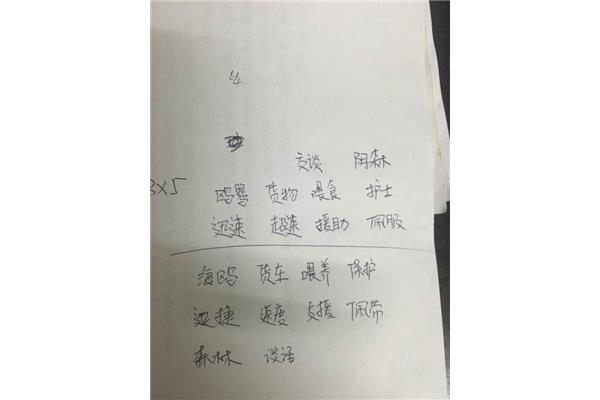 交谈 阴森
3×5 鸥 货物 喂食 护士
迅速 超速 援助 佩服
海鸥 货车 喂养 保护
迅捷 速度 支援 佩带
森林 谈话